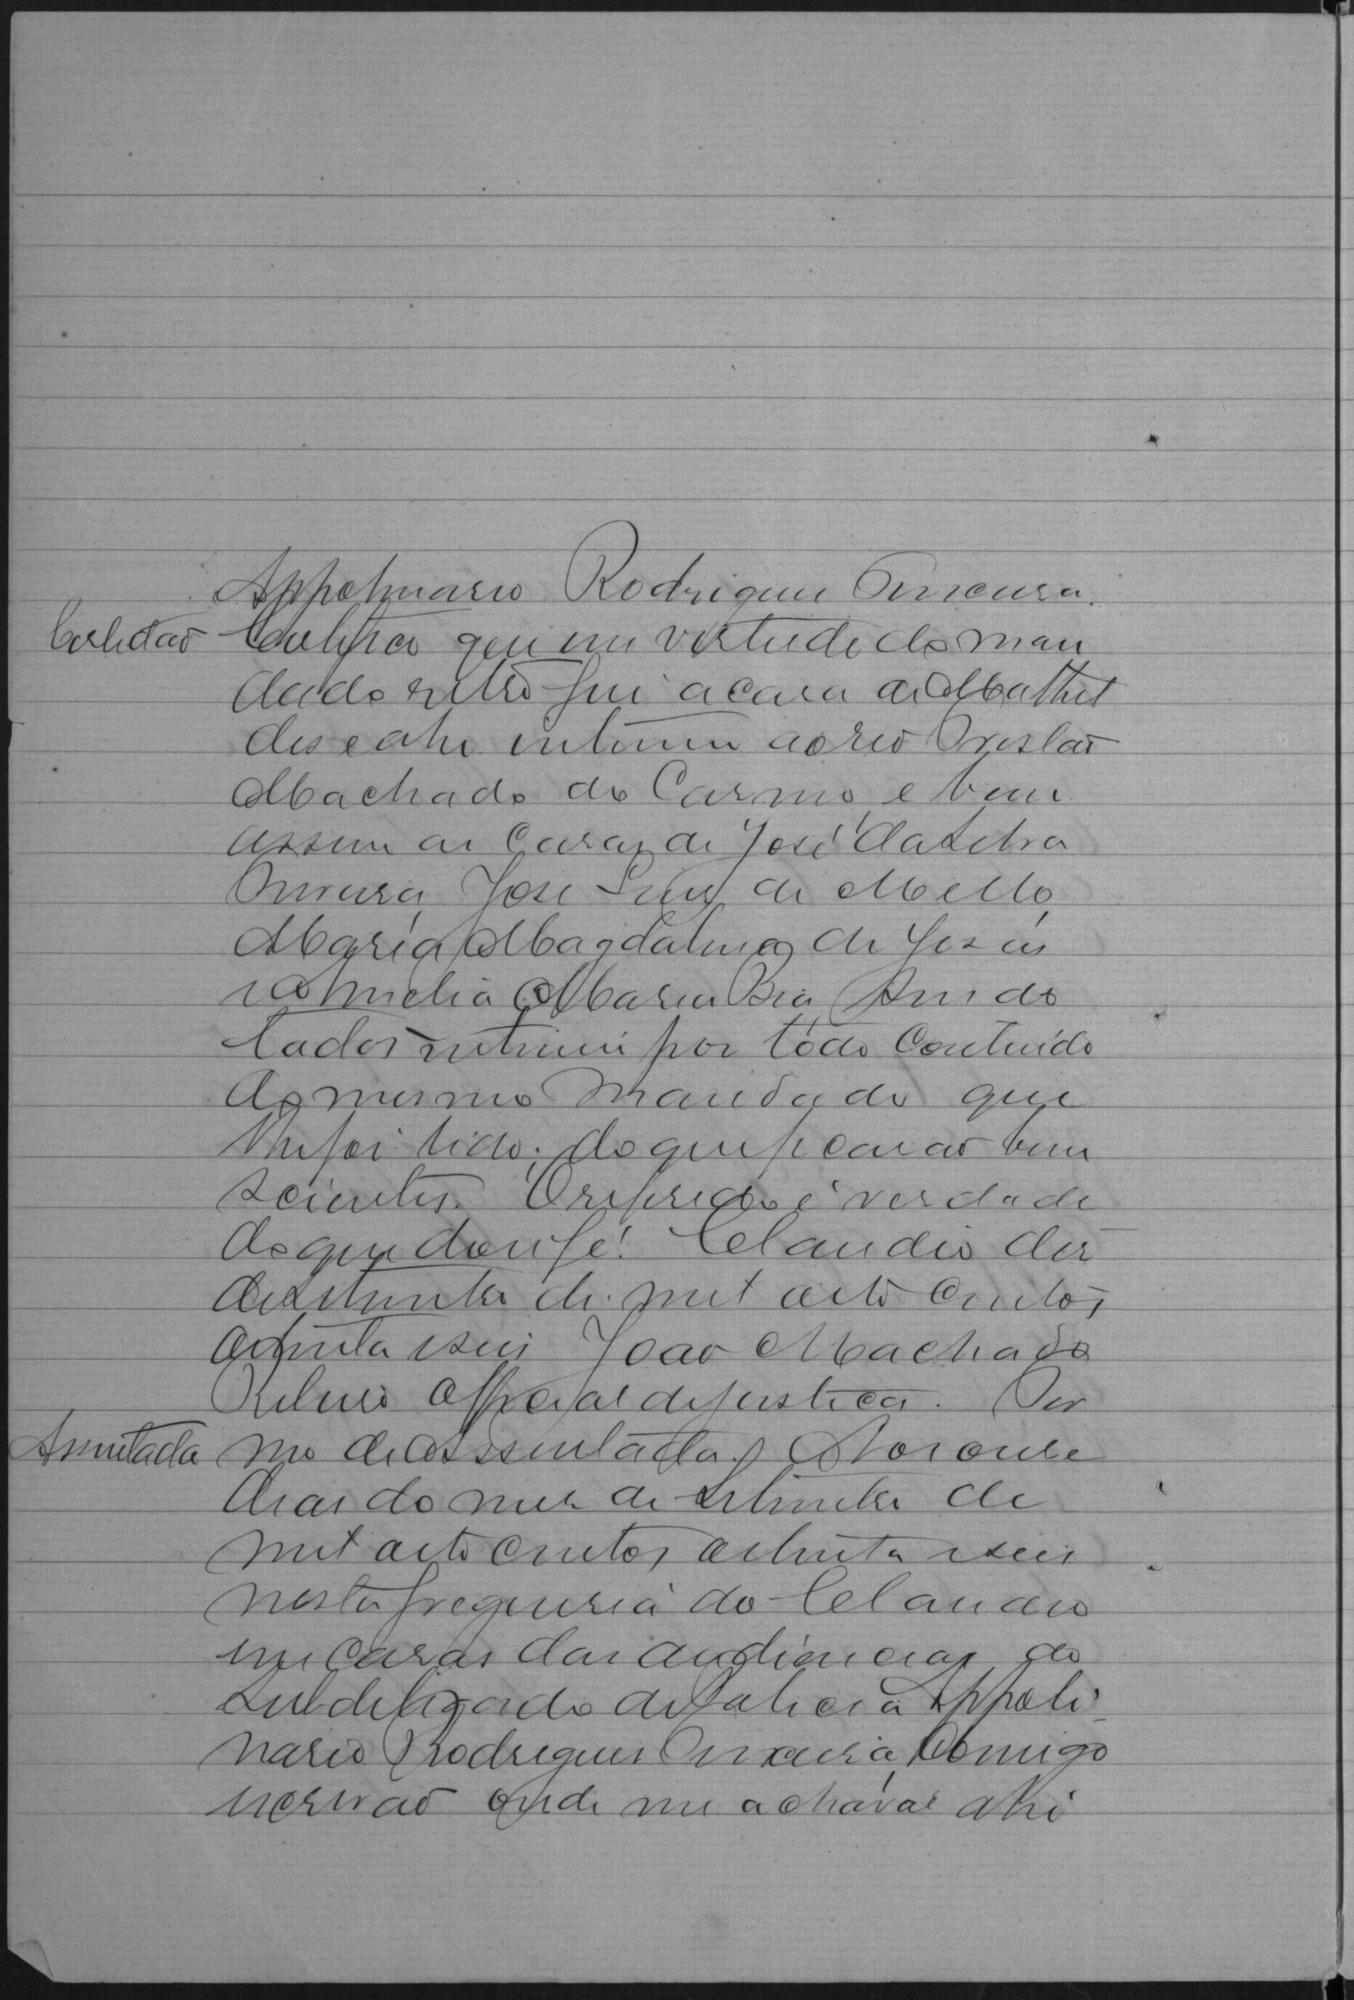 Appolinario Rodrigues Teixeira.
Certidão Certifico que em virtude do man
dado retro fui a casa de Mathil
des e ahi intimei ao reo Tristão
Machado do Carmo, e bem
assim as casas de José da Silva
Moreira, José Luis de Mello,
Maria Magdalena de Jesus
e Amelia Maria Pia,
tados intimei por todo contiudo
do mesmo mandado que
lhe foi lido; do que ficarão bem
scientes. O referido é verdade
do que dou fé. Claudio des
de Setembro de mil oito centos
oitenta e seis João Machado
Ribeiro Official de justica. Ter
Assentada mo de Assentada. Aos onse
dias do mes de Setembro de
mil oito centos oitenta e seis
nesta freguesia do Claudio
em casas das audiencias do
Subdelegado de Policia Appoli
nario Rodrigues Teixeira, Comigo
escrivão onde me achava ahi